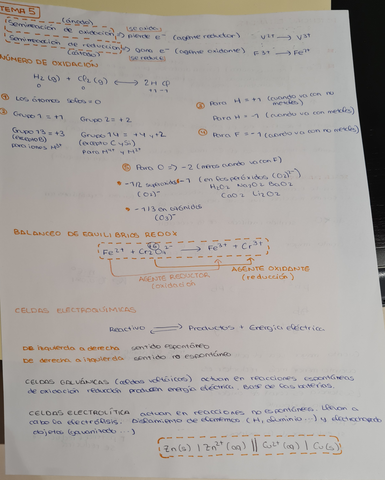 TEMA 5
(ánodo) se oxida
Semireacción de oxidación → pierde e⁻ (agente reductor) : V²⁺ → V³⁺
Semireacción de reducción → gana e⁻ (agente oxidante) Fe³⁺ → Fe²⁺
(cátodo) se reduce
NÚMERO DE OXIDACIÓN
H₂ (g) + Cl₂ (g) ⟷ 2H Cl
0 0 +1 -1
① Los átomos solos = 0
② Grupo 1 = +1 Grupo 2 = +2
Grupo 13 = +3 Grupo 14 = +4 y +2
(excepto B) (excepto C y Si)
para iones M³⁺ para M⁴⁺ y M²⁺
③ Para H = +1 (cuando va con no metales)
Para H = -1 (cuando va con metales)
④ Para F = -1 (cuando va con no metales)
⑤ Para O => -2 (menos cuando va con F)
-1/2 superóxidos (O₂)⁻
-1 (en los peróxidos (O₂)²⁻)
H₂O₂ Na₂O₂ BaO₂
CaO₂ Li₂O₂
-1/3 en ozónidos
(O₃)⁻
BALANCEO DE EQUILIBRIOS REDOX
Fe²⁺ + Cr₂O₇²⁻ → Fe³⁺ + Cr³⁺
AGENTE OXIDANTE
(reducción)
AGENTE REDUCTOR
(oxidación)
CELDAS ELECTROQUÍMICAS
Reactivo ⟷ Productos + Energía eléctrica
DE izquierda a derecha sentido espontáneo
DE derecha a izquierda sentido no espontáneo
CELDAS GALVÁNICAS (celdas voltaicas) actúan en reacciones espontáneas
de oxidación reducción producen energía eléctrica. Base de las baterías.
CELDAS ELECTROLÍTICA actúan en reacciones no espontáneas. Llevan a
cabo la electrólisis. Aislamiento de elementos (H, aluminio...) y
objetos (galvanizado...)
Zn(s) | Zn²⁺ (aq) || Cu²⁺ (aq) | Cu(s)